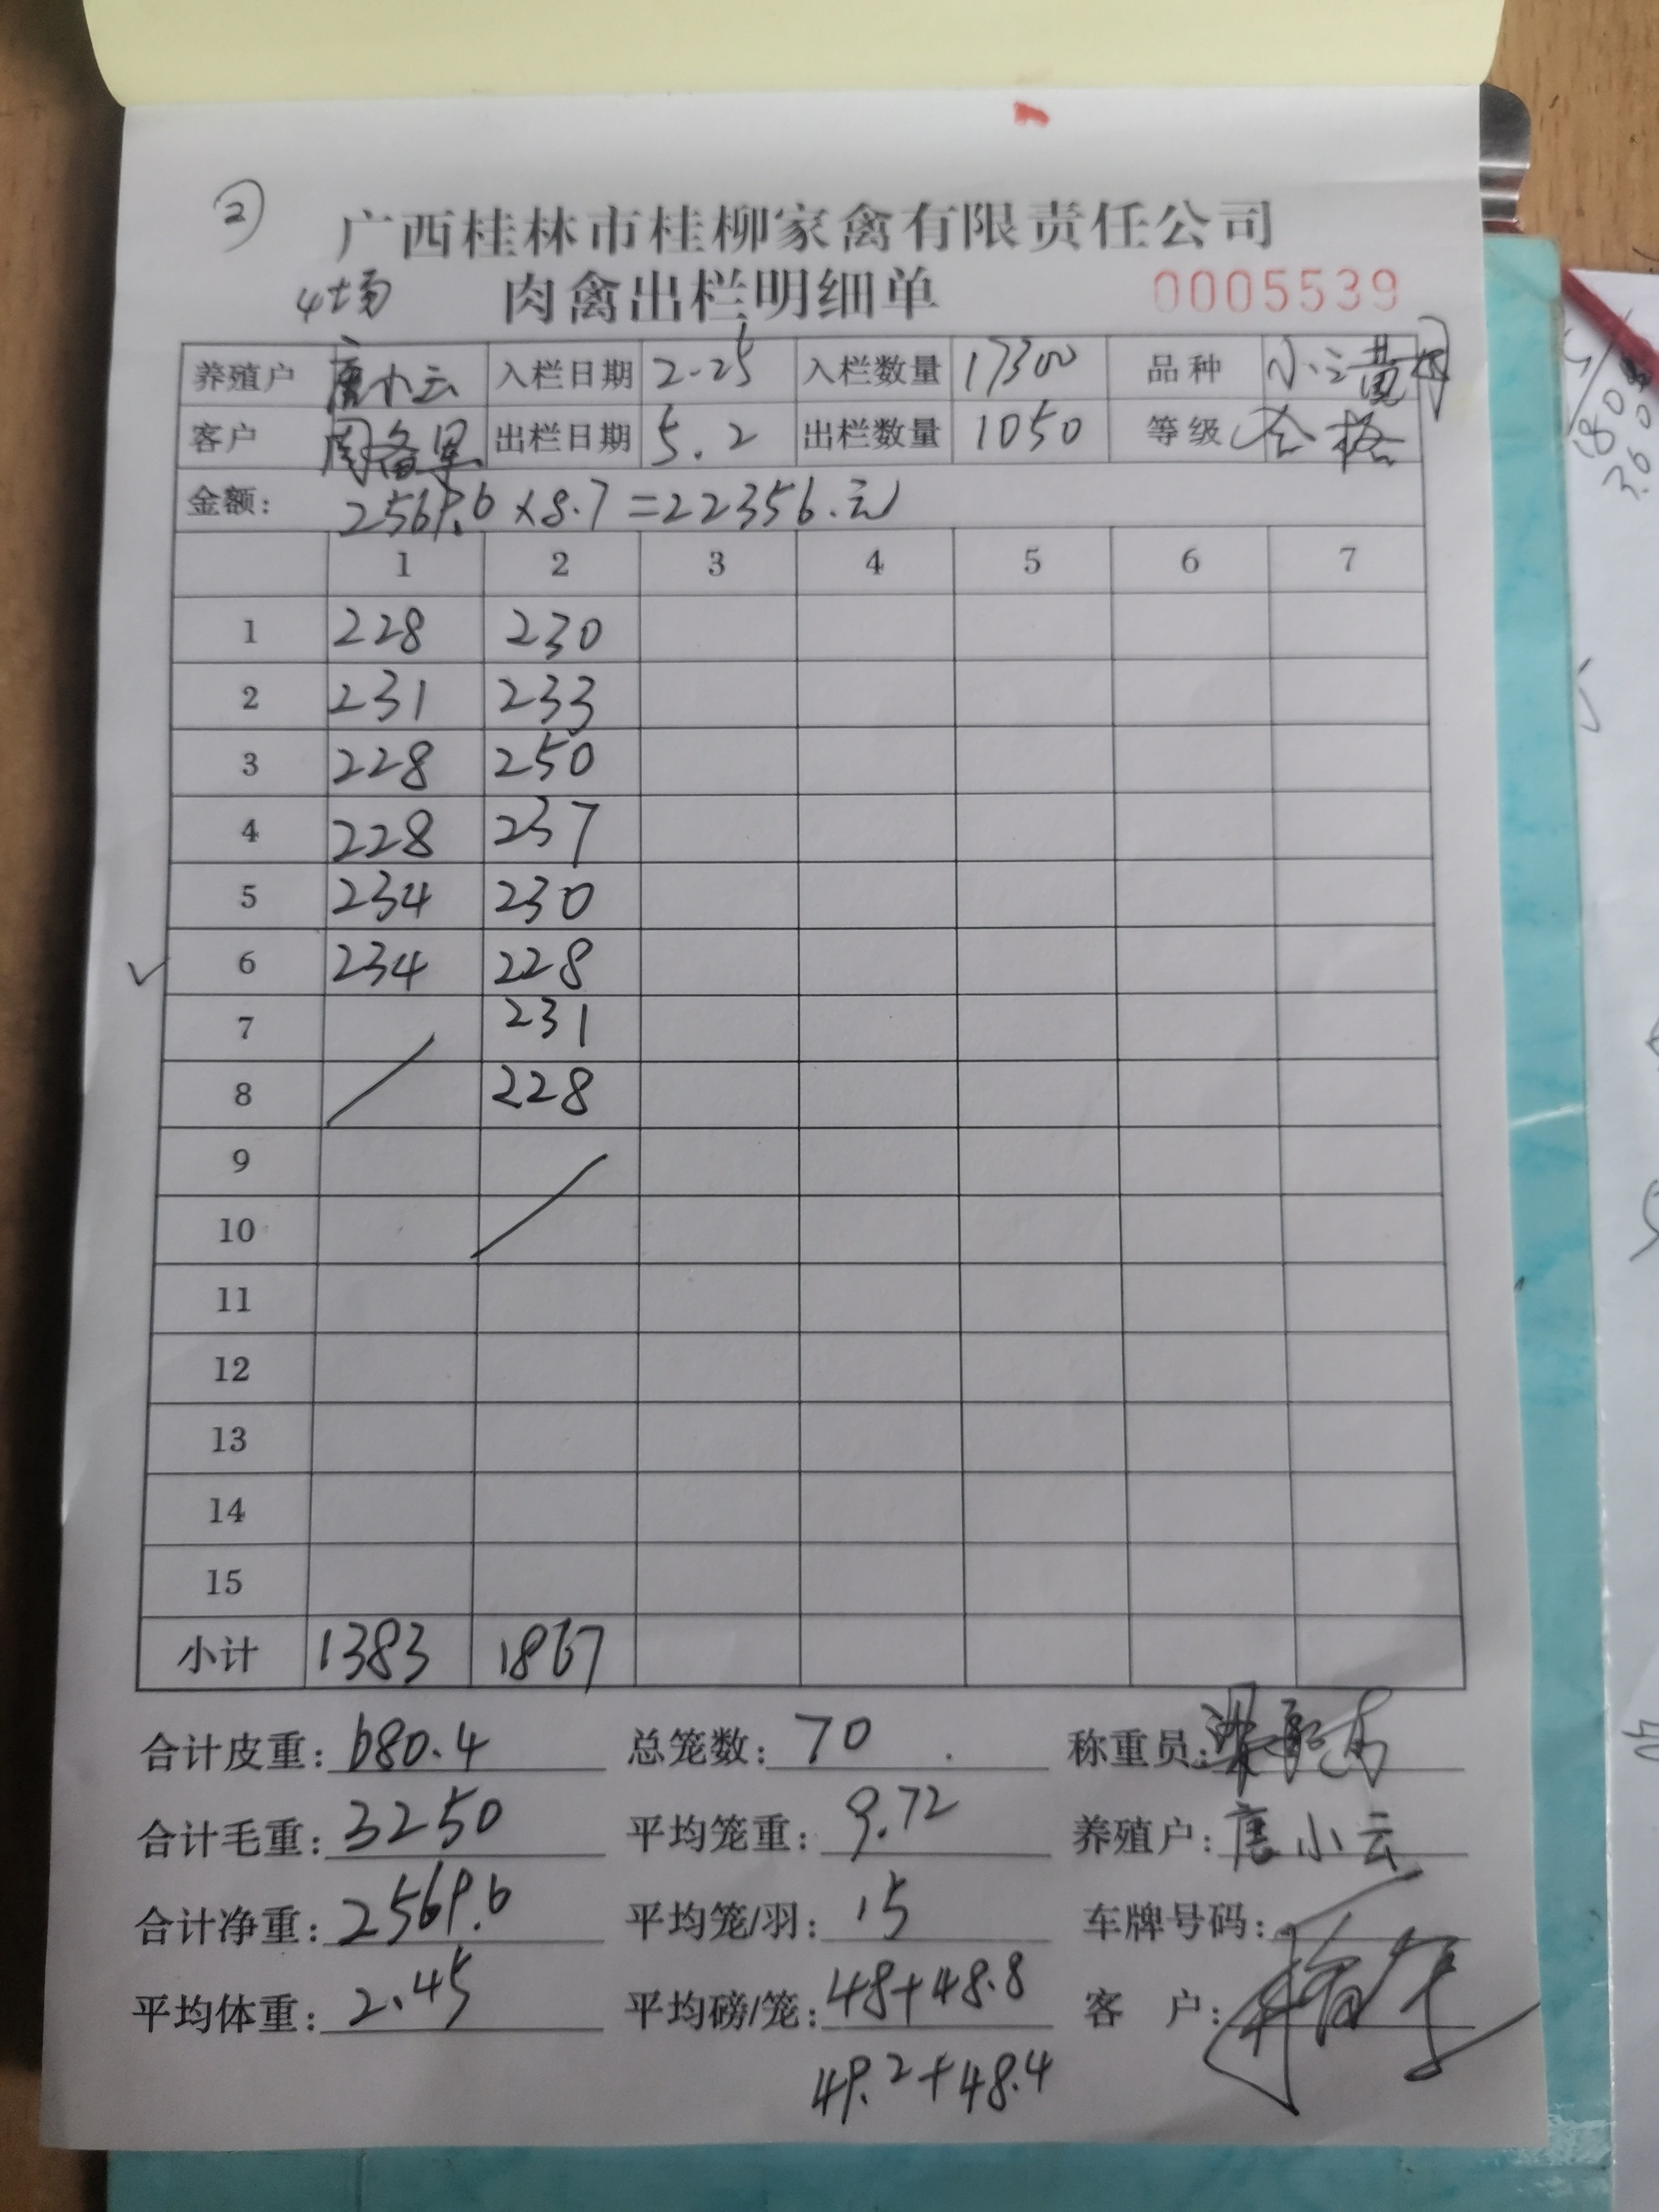 ②
广西桂林市桂柳家禽有限责任公司
4场 肉禽出栏明细单 0005539
养殖户 唐小云 入栏日期 2.25 入栏数量 17300 品种 小三黄
客户 周备军 出栏日期 5.2 出栏数量 1050 等级 合格
金额: 2569.6×8.7=22356.元
1 2 3 4 5 6 7
1 228 230
2 231 233
3 228 250
4 228 237
5 234 230
✓ 6 234 228
7 231
8 228
9
10
11
12
13
14
15
小计 1383 1867
合计皮重: 680.4 总笼数: 70 称重员:
合计毛重: 3250 平均笼重: 9.72 养殖户: 唐小云
合计净重: 2569.6 平均笼/羽: 15 车牌号码:
平均体重: 2.45 平均磅/笼: 48+48.8 客 户:
49.2+48.4